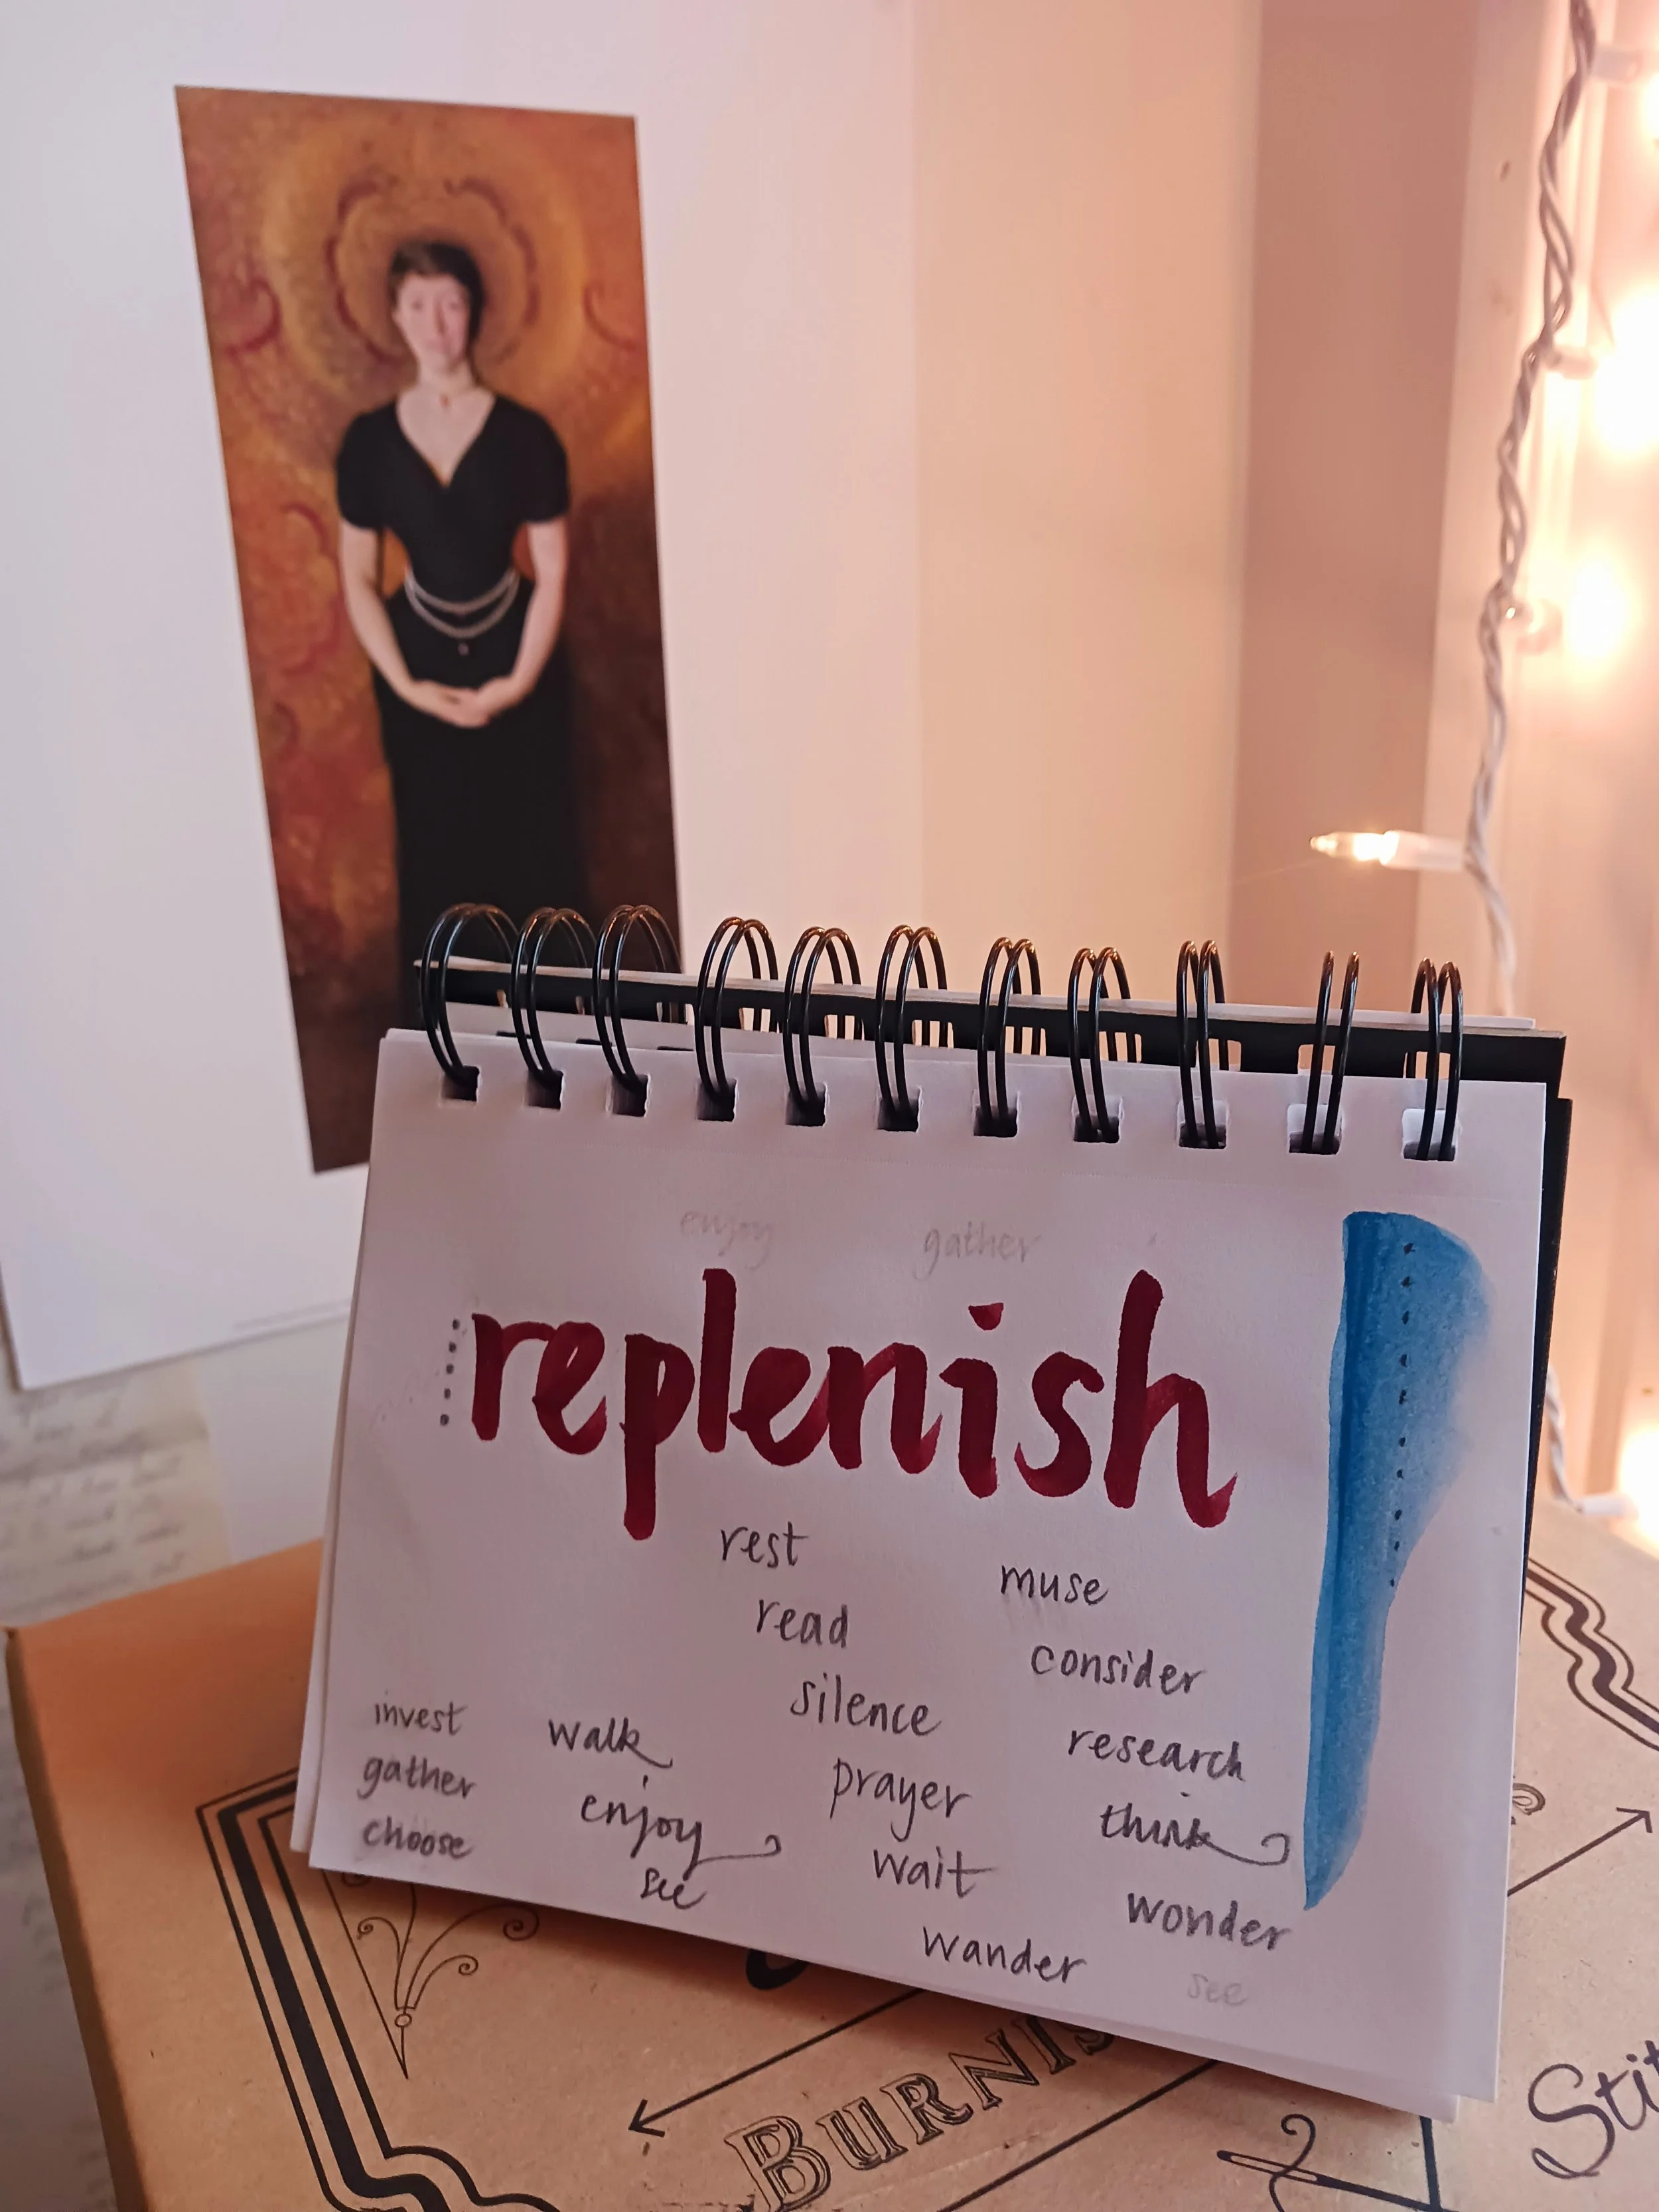 enjoy gather
replenish
rest
read
silence
prayer
wait
wander
muse
consider
research
think
wonder
see
walk
enjoy
see
invest
gather
choose
BURNIS
Stit